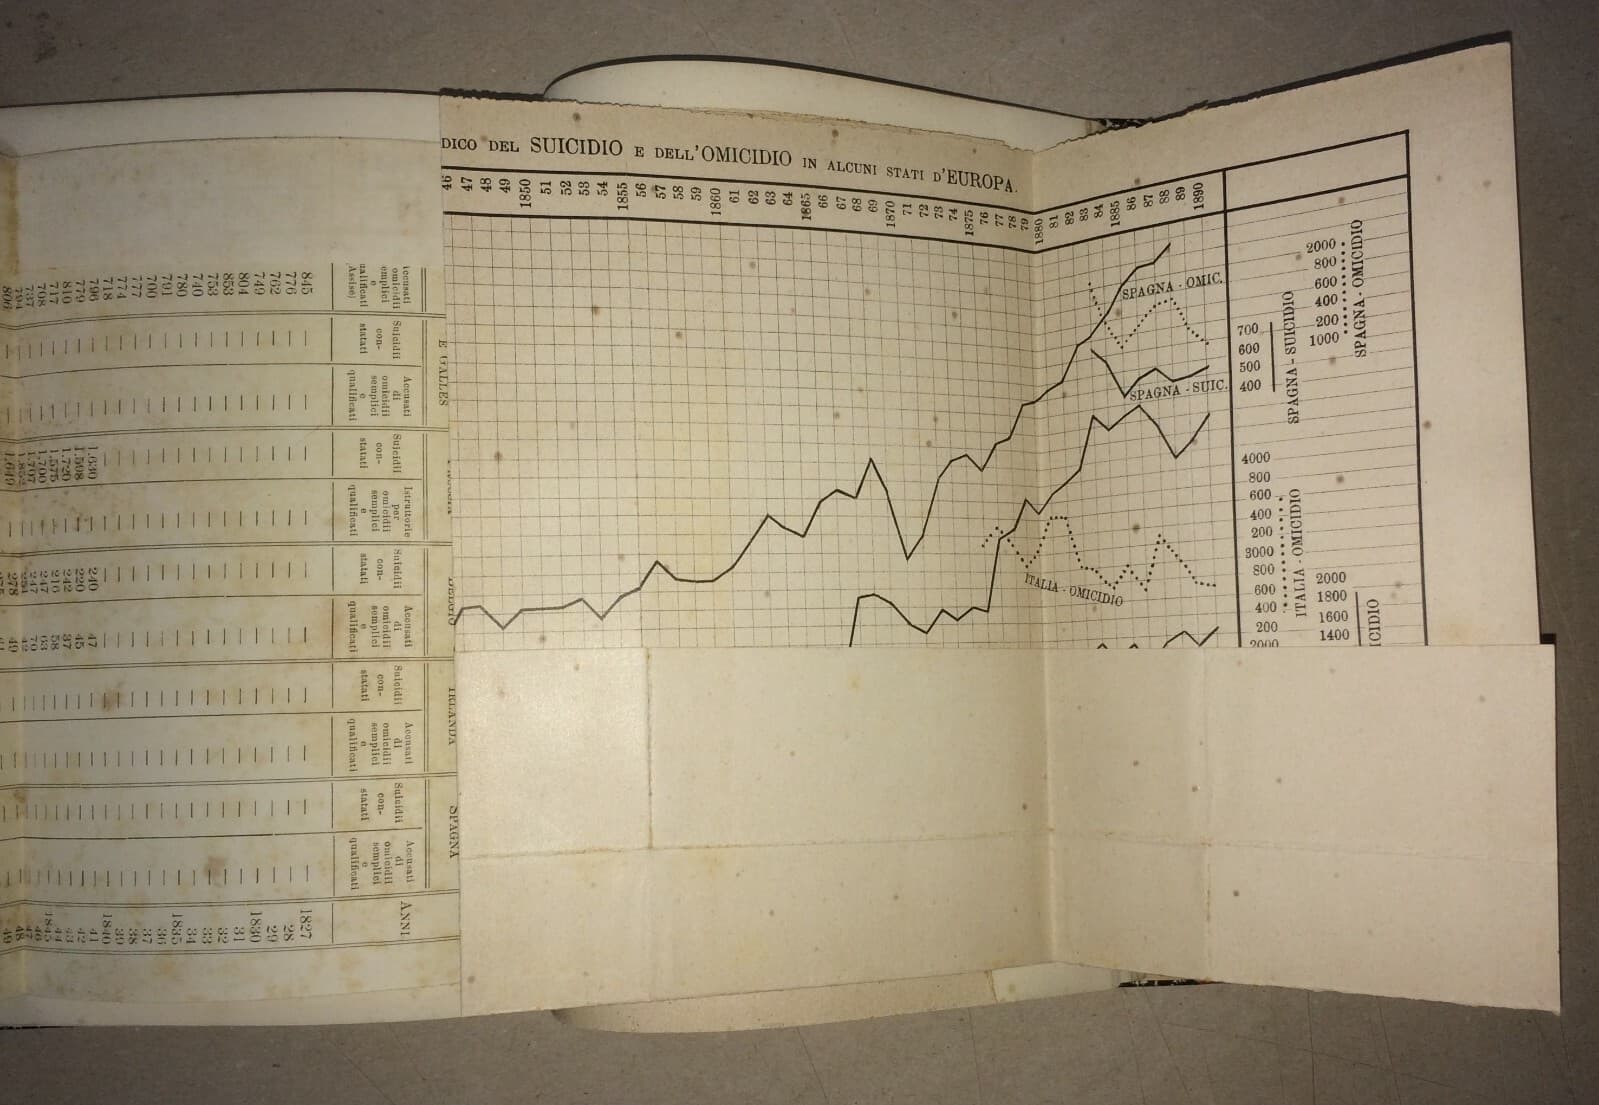 DICO DEL SUICIDIO E DELL'OMICIDIO IN ALCUNI STATI D'EUROPA.
46 47 48 49 1850 51 52 53 54 1855 56 57 58 59 1860 61 62 63 64 1865 66 67 68 69 1870 71 72 73 74 1875 76 77 78 79 1880 81 82 83 84 1885 86 87 88 89 1890
SPAGNA - OMIC.
SPAGNA - SUIC.
ITALIA - OMICIDIO
2000
800
600
400
200
1000
SPAGNA - OMICIDIO
700
600
500
400
SPAGNA - SUICIDIO
4000
800
600
400
200
3000
800
600
400
200
2000
ITALIA - OMICIDIO
2000
1800
1600
1400
ICIDIO
E GALLES
IRLANDA
SPAGNA
ANNI
Accusati di omicidii semplici e qualificati
Suicidii con- statati
Accusati di omicidii semplici e qualificati
Suicidii con- statati
Istruttorie per omicidii semplici e qualificati
Suicidii con- statati
Accusati omicidii emplici e ualificati Assise)
1827 — — — — — — — — 845
28 — — — — — — — — 776
29 — — — — — — — — 762
1830 — — — — — — — — 749
31 — — — — — — — — 804
32 — — — — — — — — 853
33 — — — — — — — — 753
34 — — — — — — — — 740
1835 — — — — — — — — 780
36 — — — — — — — — 791
37 — — — — — — — — 700
38 — — — — — — — — 777
39 — — — — — — — — 774
1840 — — — — — — — — 718
41 — — — 47 240 — 1.630 — — 796
42 — — — 45 220 — 1.598 — — 779
43 — — — 37 242 — 1.720 — — 810
44 — — — 58 216 — 1.575 — — 717
1845 — — — 63 247 — 1.700 — — 708
46 — — — 70 247 — 1.707 — — 737